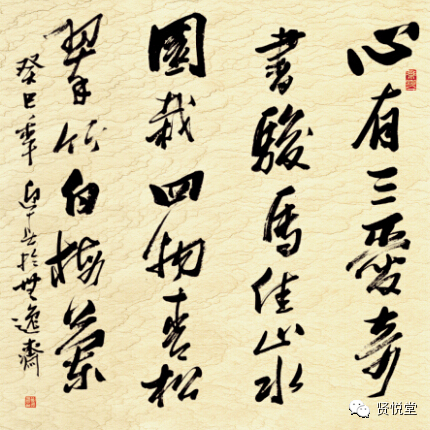 心有三愛奇
書駿馬佳山水
園栽四物青松
翠竹白梅蘭
癸巳年於逸齋
贤悦堂